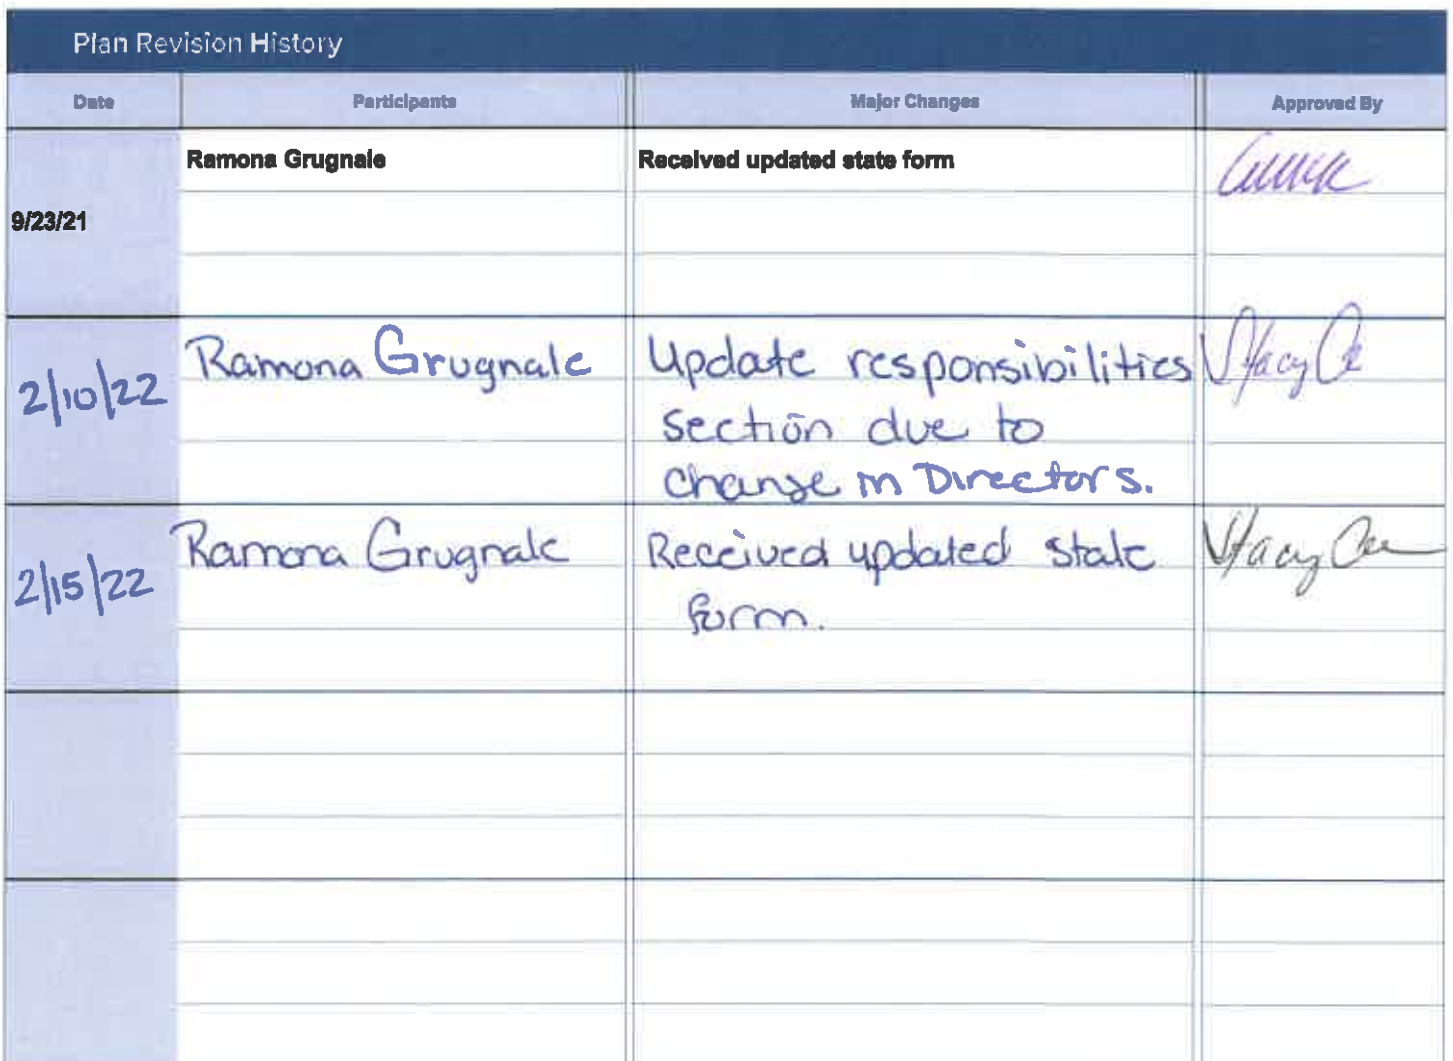 Plan Revision History
Date Participants Major Changes Approved By
Ramona Grugnale Received updated state form
9/23/21
2/10/22 Ramona Grugnale Update responsibilities Stacy
section due to
change in Directors.
2/15/22 Ramona Grugnale Received updated state Stacy
form.